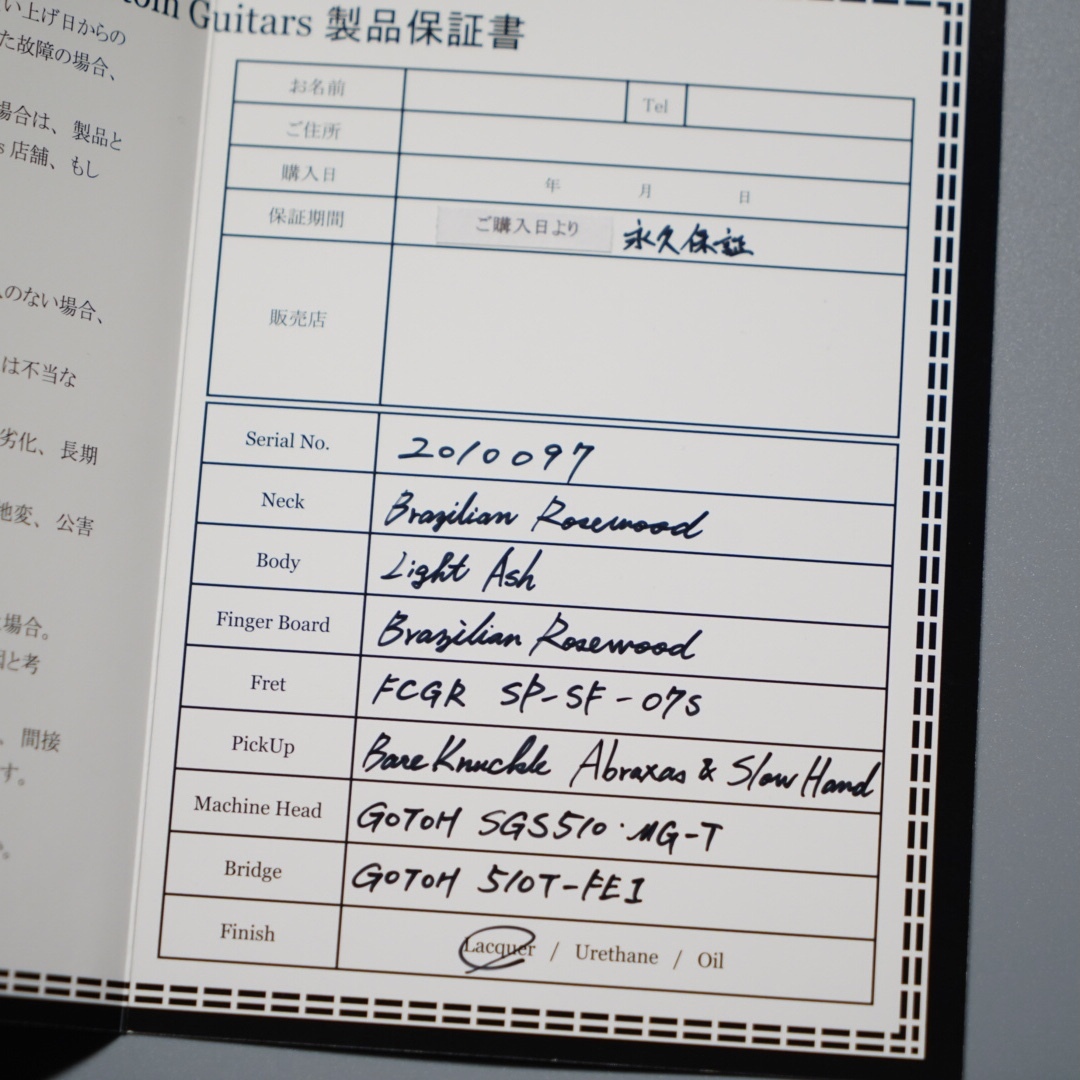 い上げ日からの
た故障の場合、
場合は、製品と
s 店舗、もし
のない場合、
は不当な
劣化、長期
地変、公害
場合。
と考
、間接
す。
Guitars 製品保証書
お名前 Tel
ご住所
購入日 年 月 日
保証期間 ご購入日より 永久保証
販売店
Serial No. 2010097
Neck Brazilian Rosewood
Body Light Ash
Finger Board Brazilian Rosewood
Fret FCGR SP-SF-07S
PickUp BareKnuckle Abraxas & Slow Hand
Machine Head GOTOH SGS510・MG-T
Bridge GOTOH 510T-FE1
Finish Lacquer / Urethane / Oil